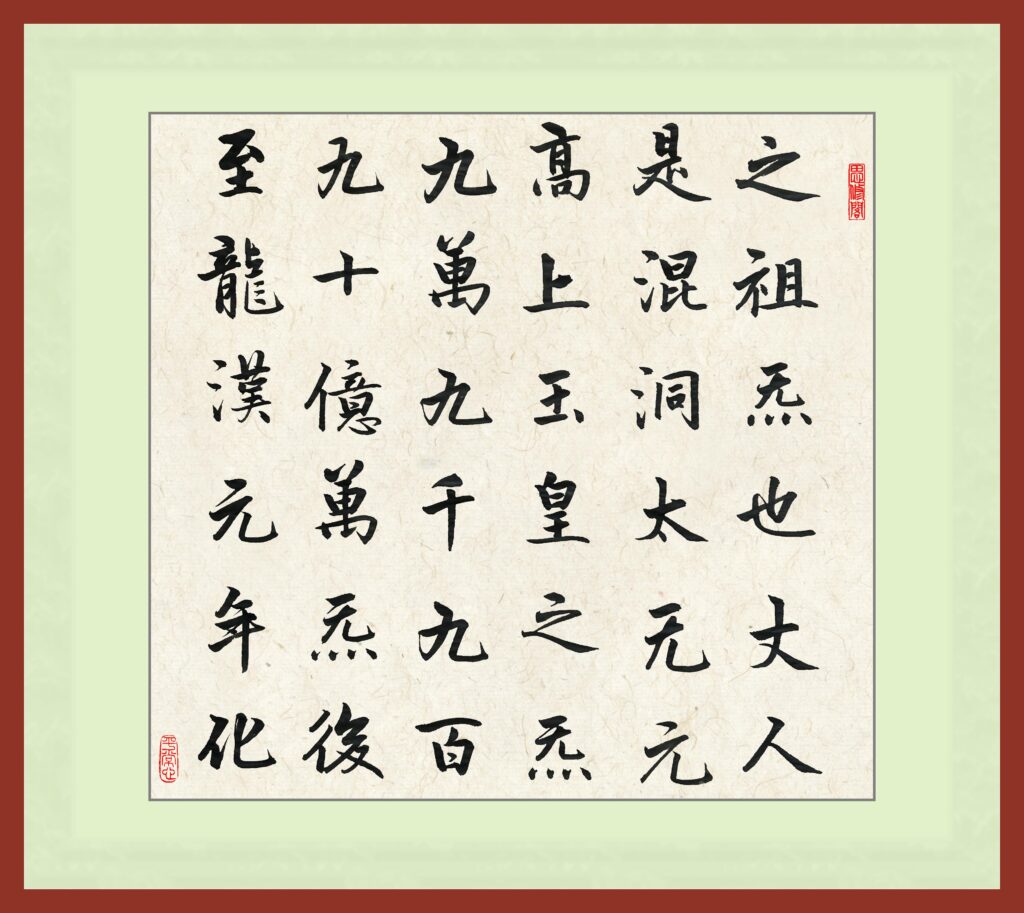 之祖炁也丈人
是混洞太无元
高上玉皇之炁
九萬九千九百
九十億萬炁後
至龍漢元年化
平常心